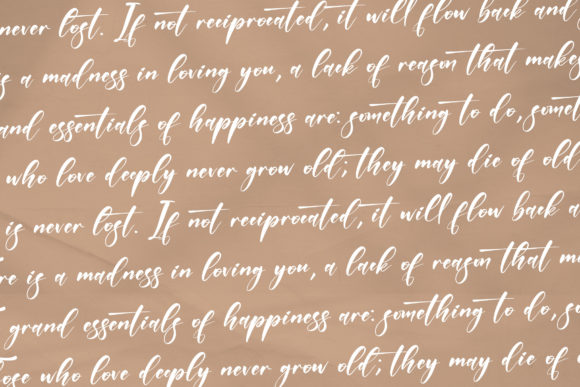 never lost. If not reciprocated, it will flow back and
is a madness in loving you, a lack of reason that makes
and essentials of happiness are: something to do, some
who love deeply never grow old; they may die of old
is never lost. If not reciprocated, it will flow back a
re is a madness in loving you, a lack of reason that m
grand essentials of happiness are: something to do, so
ose who love deeply never grow old; they may die of